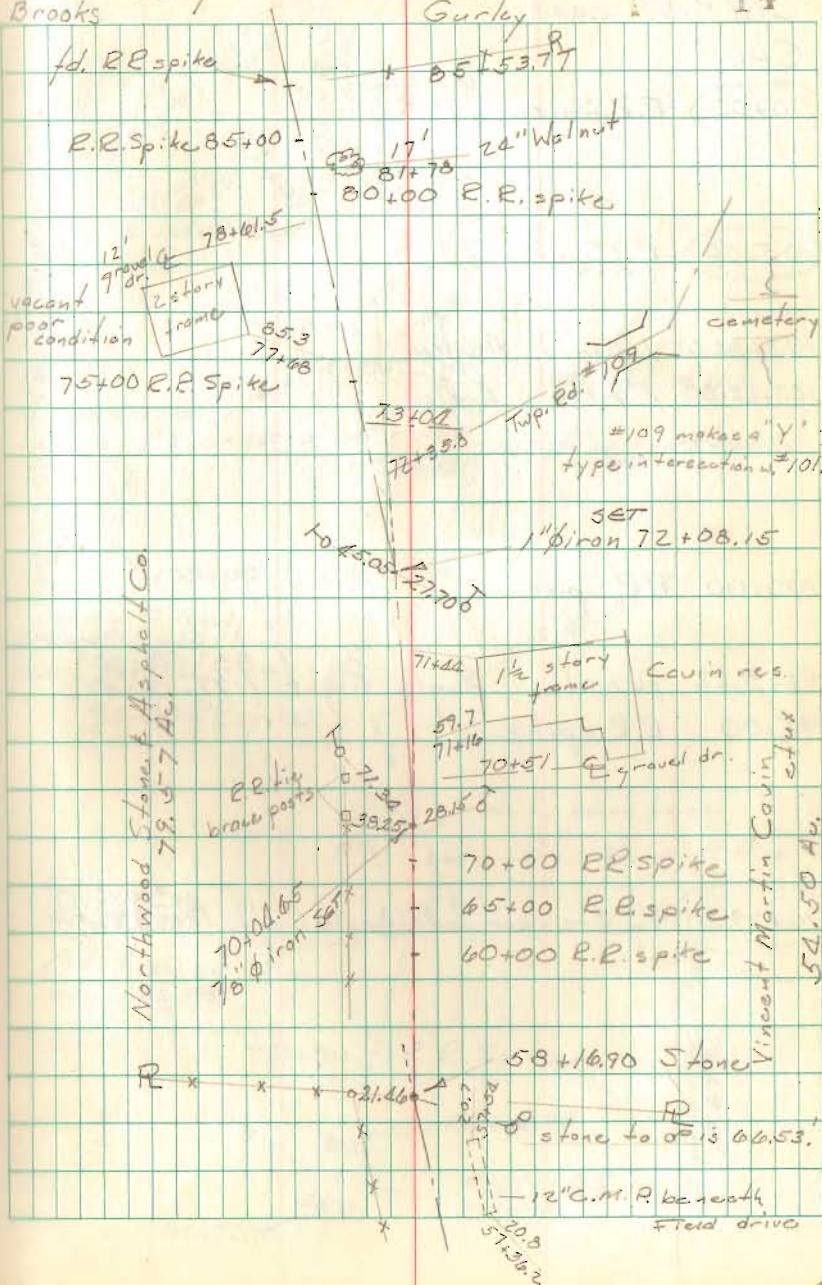 Brooks
Gurley
14
fd. R.R. spike
85+53.77
R.R. Spike 85+00
17' 24" Walnut
81+78
80+00 R.R. spike
78+61.5
12'
gravel
dr.
vacant
poor
condition
2 story
frame
85.3
77+68
cemetery
75+00 R.R. Spike
73+02
Twp. Rd. #109
72+35.8
#109 makes a "Y"
type intersection w. #101.
SET
1"ϕ iron 72+08.15
45.05
27.70
Northwood Stone & Asphalt Co.
79.57 Ac.
71+44
1½ story
frame
Cavin res.
59.7
71+16
70+51 ℄ gravel dr.
R.R. tie
brace posts
71.30
38.25
28.15
70+00 R.R. spike
65+00 R.R. spike
60+00 R.R. spike
70+04.65
7/8"ϕ iron set
Vincent Martin Cavin
etux
54.50 Ac.
58+16.90 Stone
PL
21.46
PL
20.7
57+54
stone to is 66.53'
12" C.M.P. beneath
Field drive
20.8
57+36.2